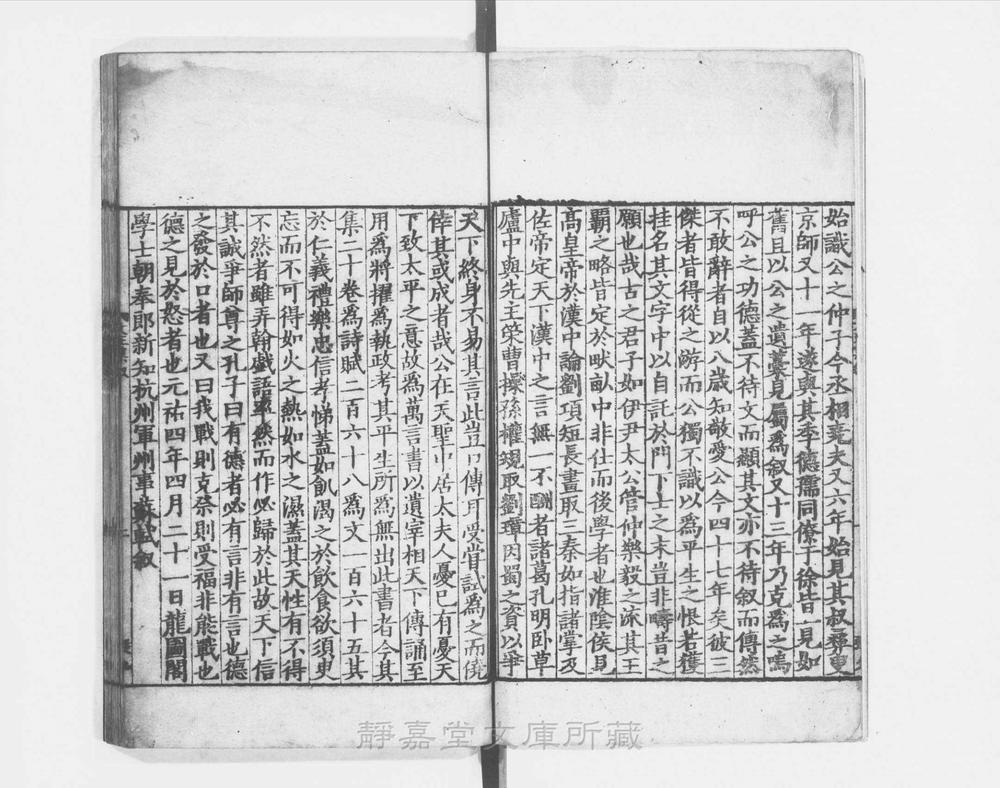 始識公之仲子今丞相堯夫又六年始見其叔彛叟
京師又十一年遂與其季德孺同僚于徐皆一見如
舊且以公之遺藁見屬爲叙又十三年乃克爲之嗚
呼公之功德蓋不待文而顯其文亦不待叙而傳然
不敢辭者自以八歲知敬愛公今四十七年矣彼三
傑者皆得從之游而公獨不識以爲平生之恨若獲
挂名其文字中以自託於門下士之末豈非疇昔之
願也哉古之君子如伊尹太公管仲樂毅之流其王
霸之略皆定於畎畝中非仕而後學者也淮陰侯見
髙皇帝於漢中論劉項短長畫取三秦如指諸掌及
佐帝定天下漢中之言無一不酬者諸葛孔明卧草
廬中與先主䇿曹操孫權規取劉璋因蜀之資以爭
天下終身不易其言此豈口傳耳受嘗試爲之而僥
倖其或成者哉公在天聖中居太夫人憂巳有憂天
下致太平之意故爲萬言書以遺宰相天下傳誦至
用爲將擢爲執政考其平生所爲無出此書者今其
集二十卷爲詩賦二百六十八爲文一百六十五其
於仁義禮樂忠信孝悌蓋如飢渇之於飲食欲須臾
忘而不可得如火之熱如水之濕蓋其天性有不得
不然者雖弄翰戲語率然而作必歸於此故天下信
其誠爭師尊之孔子曰有德者必有言非有言也德
之發於口者也又曰我戰則克祭則受福非能戰也
德之見於怒者也元祐四年四月二十一日龍圖閣
學士朝奉郎新知杭州軍州事蘇軾叙
靜嘉堂文庫所藏